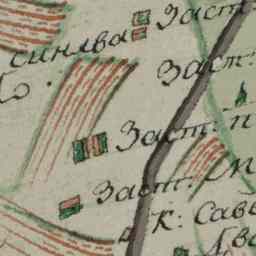 Заст:
синява
Заст:
Заст: п
Заст:
К: Сав
Два